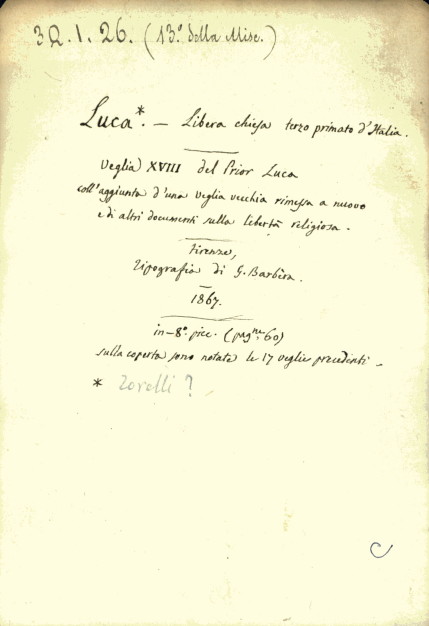 3Q.1.26. (13.º della Misc.)
Luca*. — Libera chiesa terzo primato d'Italia.
Veglia XVIII del Prior Luca
coll'aggiunta d'una veglia vecchia rimessa a nuovo
e di altri documenti sulla libertà religiosa.
Firenze,
Tipografia di G. Barbèra.
1867.
in-8º picc. (pagne. 60)
sulla coperta sono notate le 17 veglie precedenti.
* Zorelli ?
C